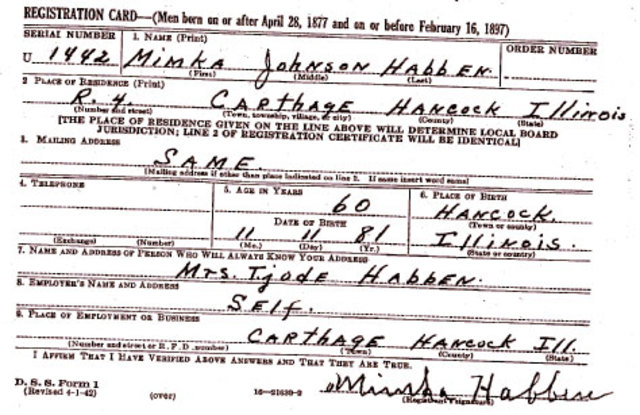 REGISTRATION CARD—(Men born on or after April 28, 1877 and on or before February 16, 1897)
SERIAL NUMBER 1. NAME (Print) ORDER NUMBER
U 1442 Mimka Johnson Habben
(First) (Middle) (Last)
2 PLACE OF RESIDENCE (Print)
R. 4. CARTHAGE HANCOCK Illinois
(Number and street) (Town, township, village, or city) (County) (State)
[THE PLACE OF RESIDENCE GIVEN ON THE LINE ABOVE WILL DETERMINE LOCAL BOARD
JURISDICTION; LINE 2 OF REGISTRATION CERTIFICATE WILL BE IDENTICAL]
3. MAILING ADDRESS
SAME
[Mailing address if other than place indicated on line 2. If same insert word same]
4. TELEPHONE 5. AGE IN YEARS 6. PLACE OF BIRTH
60 HANCOCK
DATE OF BIRTH (Town or county)
11 11 81 Illinois.
(Exchange) (Number) (Mo.) (Day) (Yr.) (State or country)
7. NAME AND ADDRESS OF PERSON WHO WILL ALWAYS KNOW YOUR ADDRESS
Mrs. Tjode Habben.
8. EMPLOYER'S NAME AND ADDRESS
Self.
9. PLACE OF EMPLOYMENT OR BUSINESS
CARTHAGE Hancock Ill.
(Number and street or R. F. D. number) (Town) (County) (State)
I AFFIRM THAT I HAVE VERIFIED ABOVE ANSWERS AND THAT THEY ARE TRUE.
D. S. S. Form 1
(Revised 4-1-42) (over) 16—21630-2 Mimka Habben
(Registrant's signature)